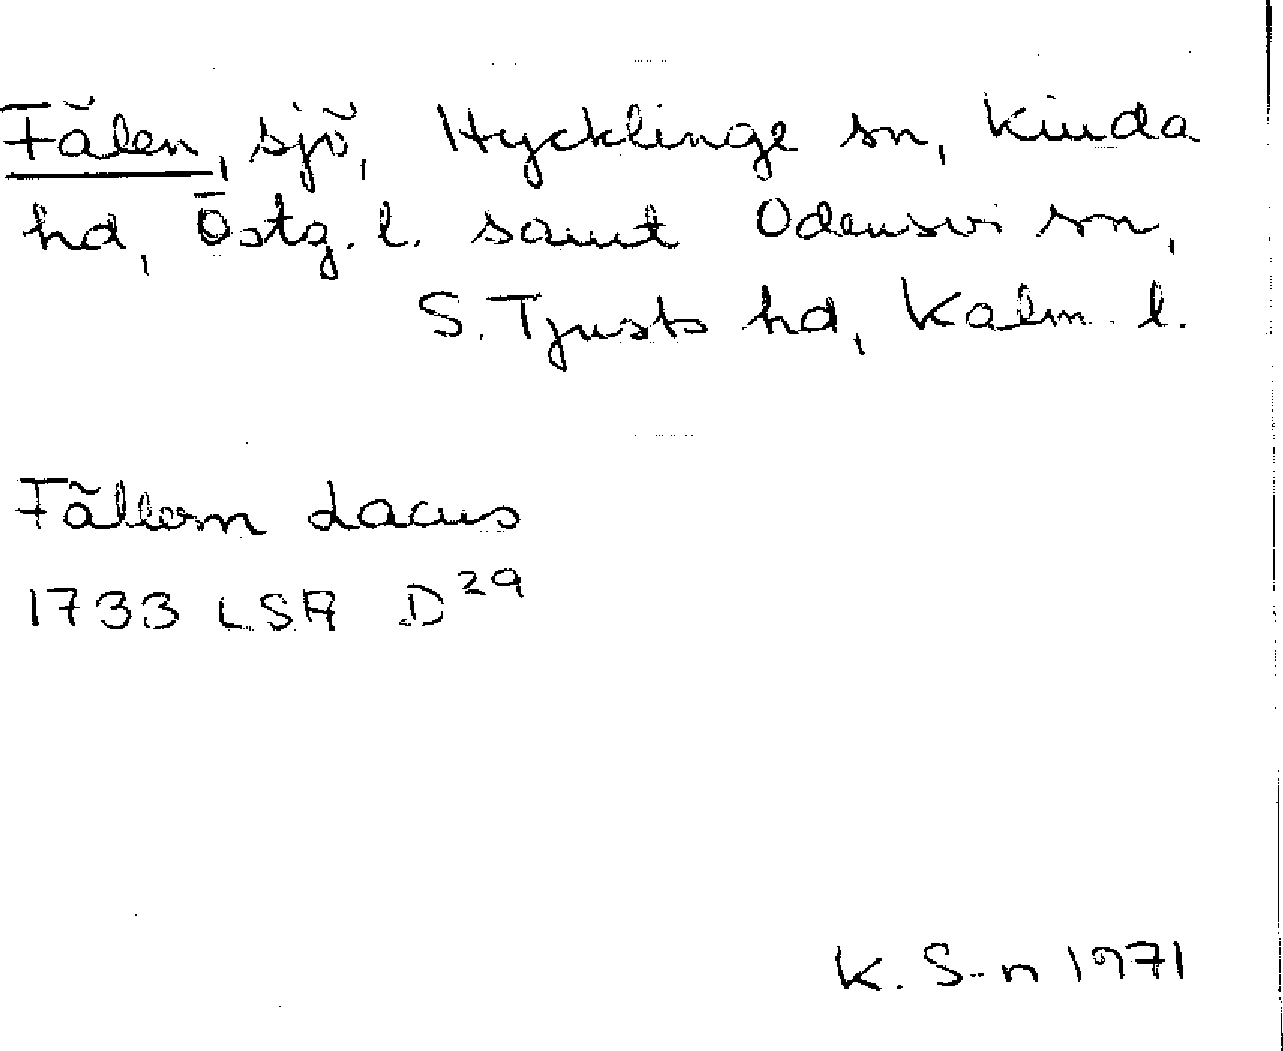 Fälen, sjö, Hycklinge sn, Kinda
hd, Östg. l. samt Odensvi sn,
S. Tjusts hd, Kalm. l.
Fällern Lacus
1733 LSA D²⁹
K. S-n 1971